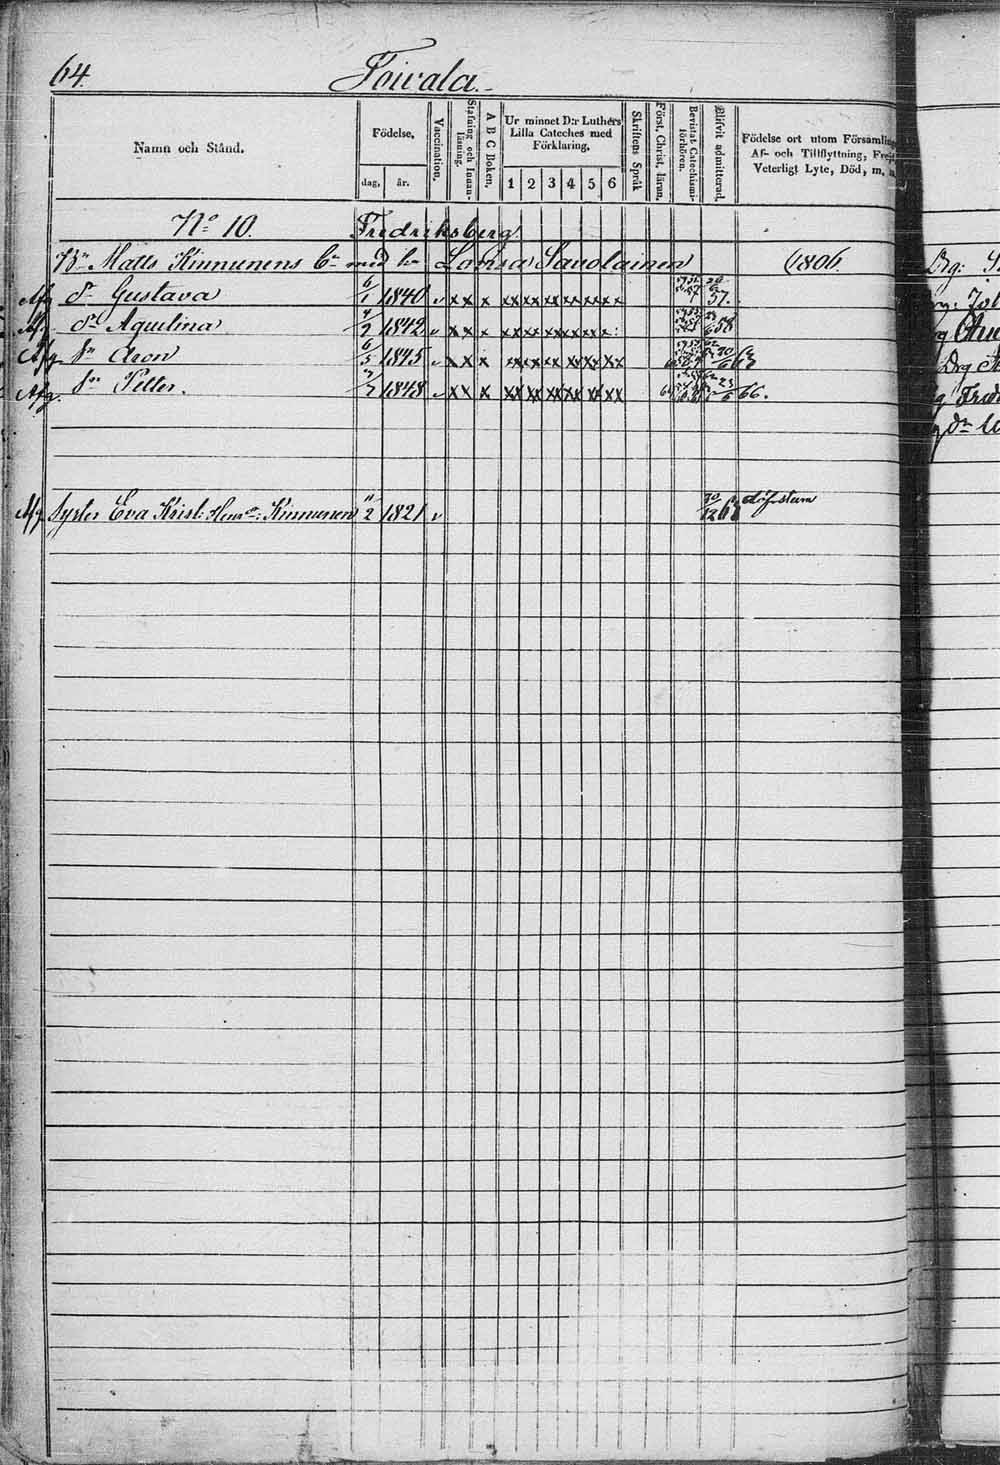 64.
Toivala.
Namn och Stånd.
Födelse,
dag,
år.
Vaccination.
Stafning och Innan-
läsning.
A B C Boken.
Ur minnet D:r Luthers
Lilla Cateches med
Förklaring.
1 2 3 4 5 6
Skriftens Språk
Först, Christ, läran.
Bevistat Catechismi-
förhören.
Blifvit admitterad.
Födelse ort utom Församling
Af- och Tillflyttning, Frejd
Veterligt Lyte, Död, m. m.
No 10. Fredriksberg.
Bn Matts Kinnunens Enka med hr Lovisa Savolainen 1806.
Afg Dr Gustava 6/1 1840 v x x x xx xx xx xx xx xx 57.
Afg. Dr Aquilina 1842 v x x x 58
Afg. Sn Aron 6/5 1845 v x x x xx xx xx xx xx xx 63
Afg. Sn Petter. 7/7 1848 v x x x xx xx xx xx xx xx 23/6 66.
Afg. Syster Eva Krist: Henrs: Kinnunen 11/2 1821 v döfstum